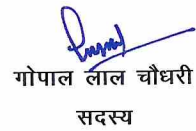 गोपाल लाल चौधरी
सदस्य